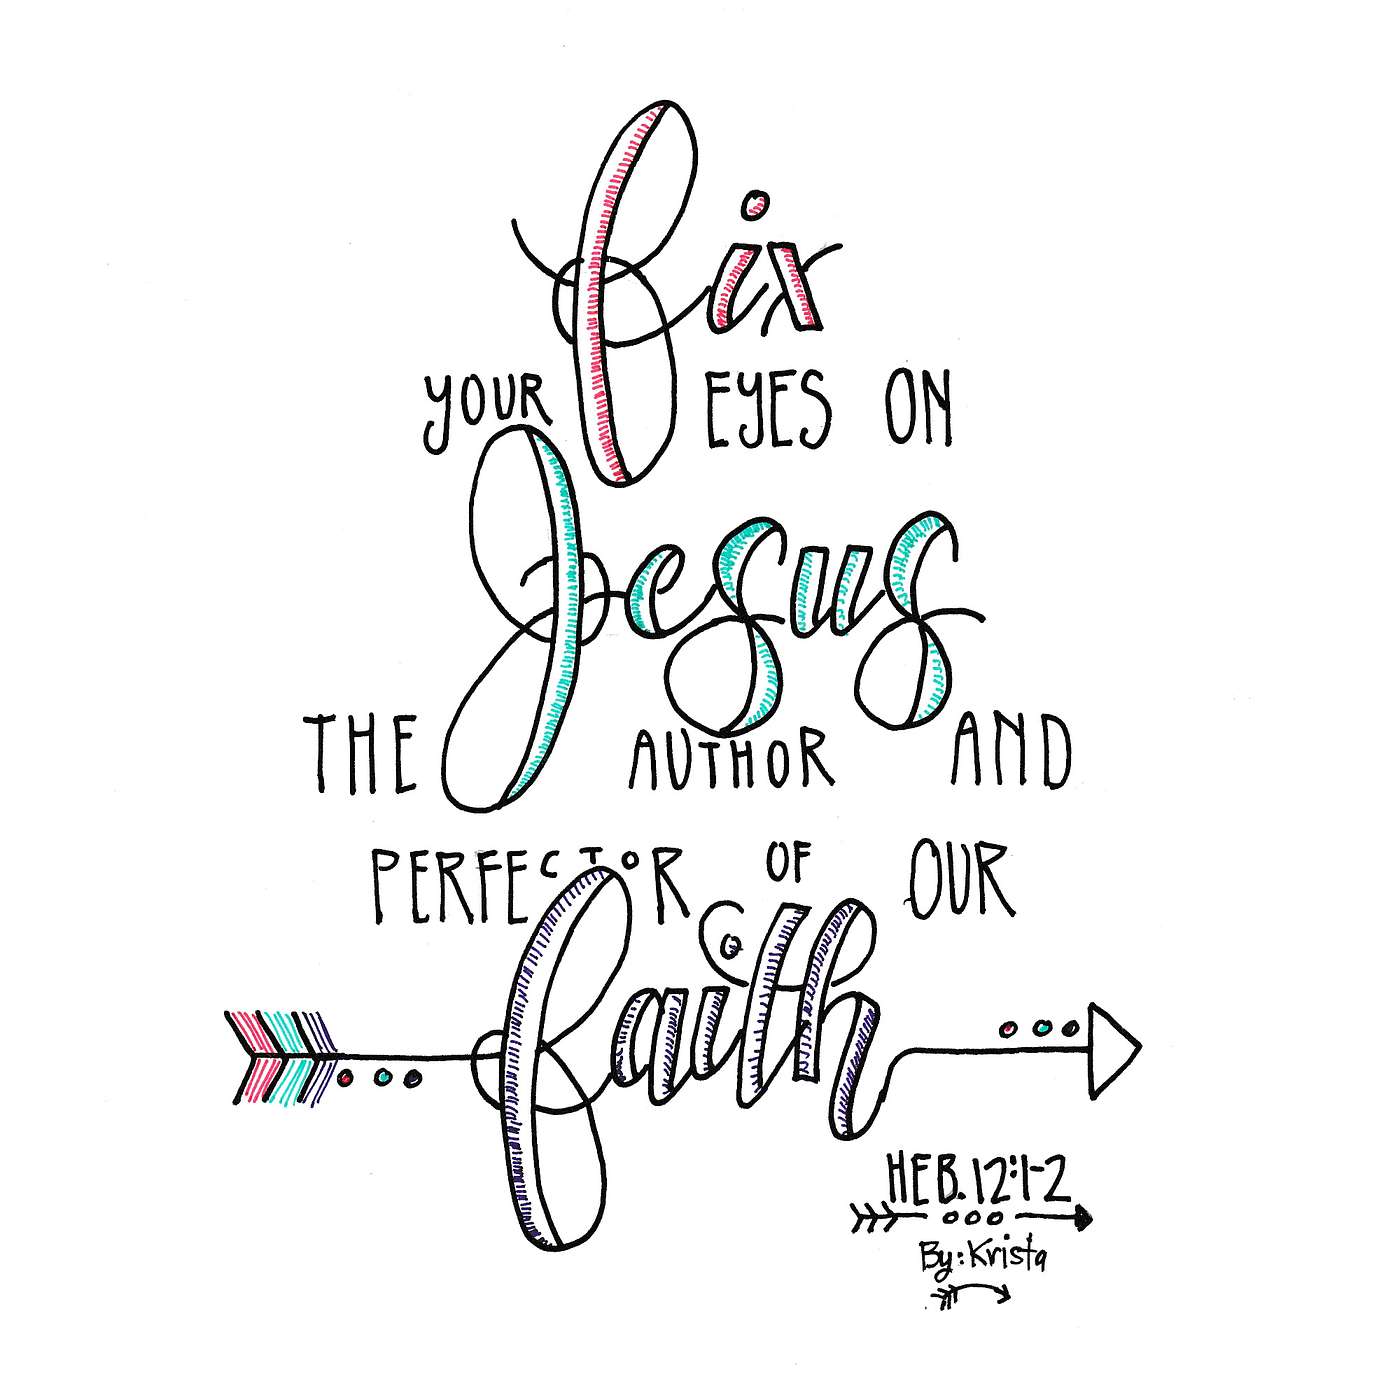 fix
YOUR EYES ON
Jesus
THE AUTHOR AND
PERFECTOR OF OUR
faith
HEB. 12:1-2
By: Krista